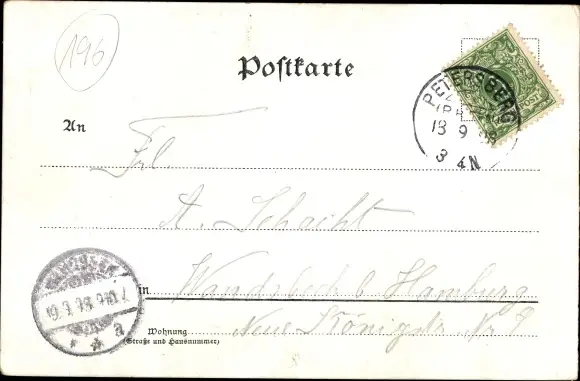 196
Postkarte
PETERSBERG
18 9
3-4N
An
Frl.
A. Schacht
in Wandsbeck b Hamburg
Wohnung
(Straße und Hausnummer)
Neue Königstr. Nr 9